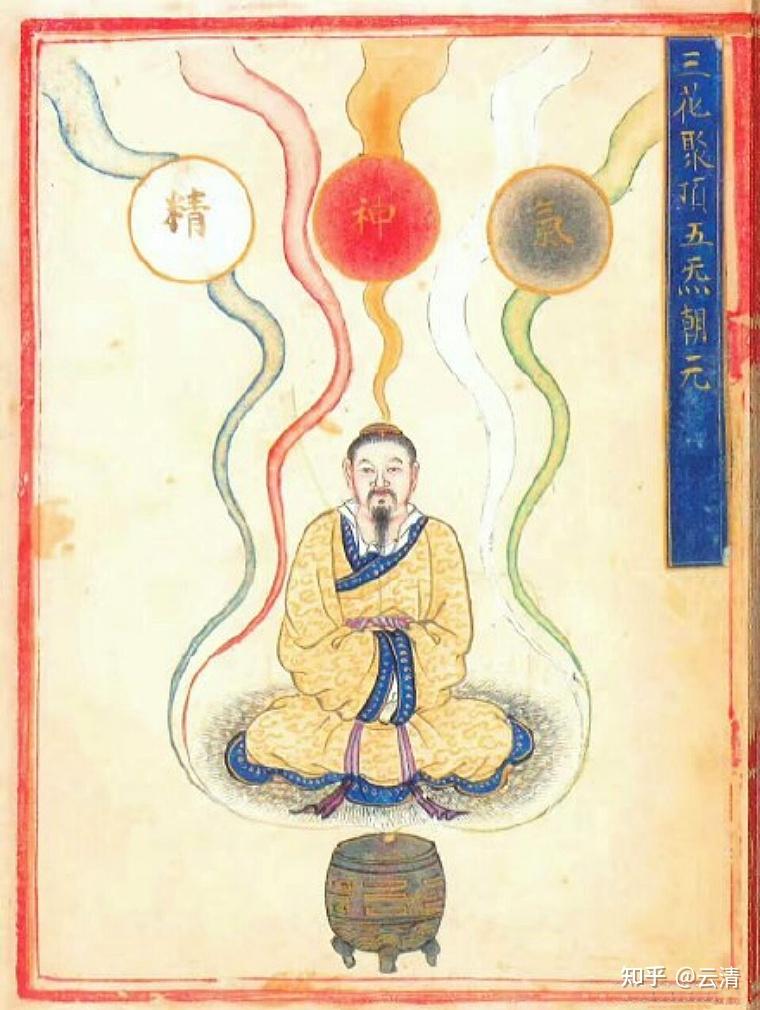 三花聚頂五炁朝元
精
神
氣
知乎 @云清